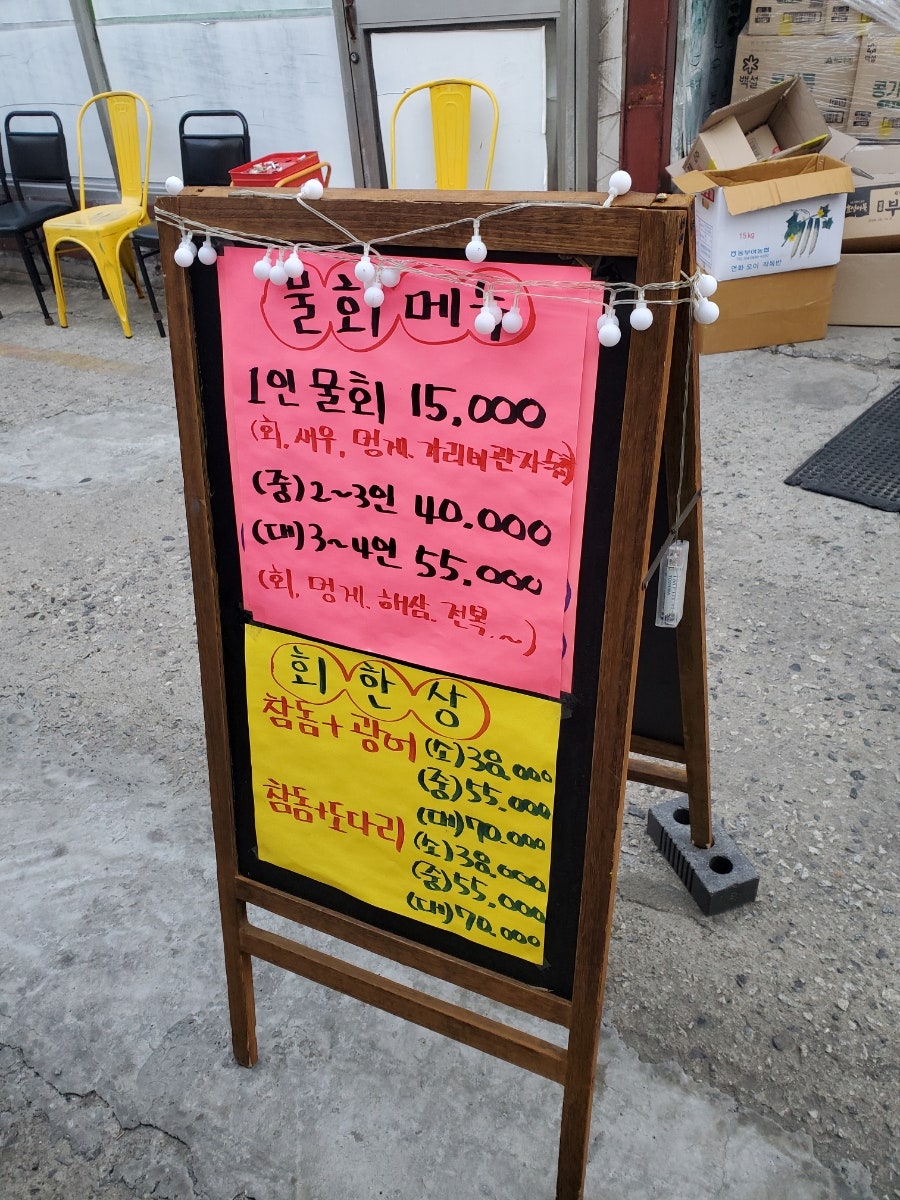 물회 메뉴
1인 물회 15,000
(회, 새우, 멍게, 가리비관자등)
(중) 2~3인 40.000
(대) 3~4인 55.000
(회, 멍게, 해삼, 전복, ~)
회 한 상
참돔+광어 (소) 38,000
(중) 55,000
(대) 70.000
참돔+도다리 (소) 38,000
(중) 55,000
(대) 70.000
백설
콩기
15kg